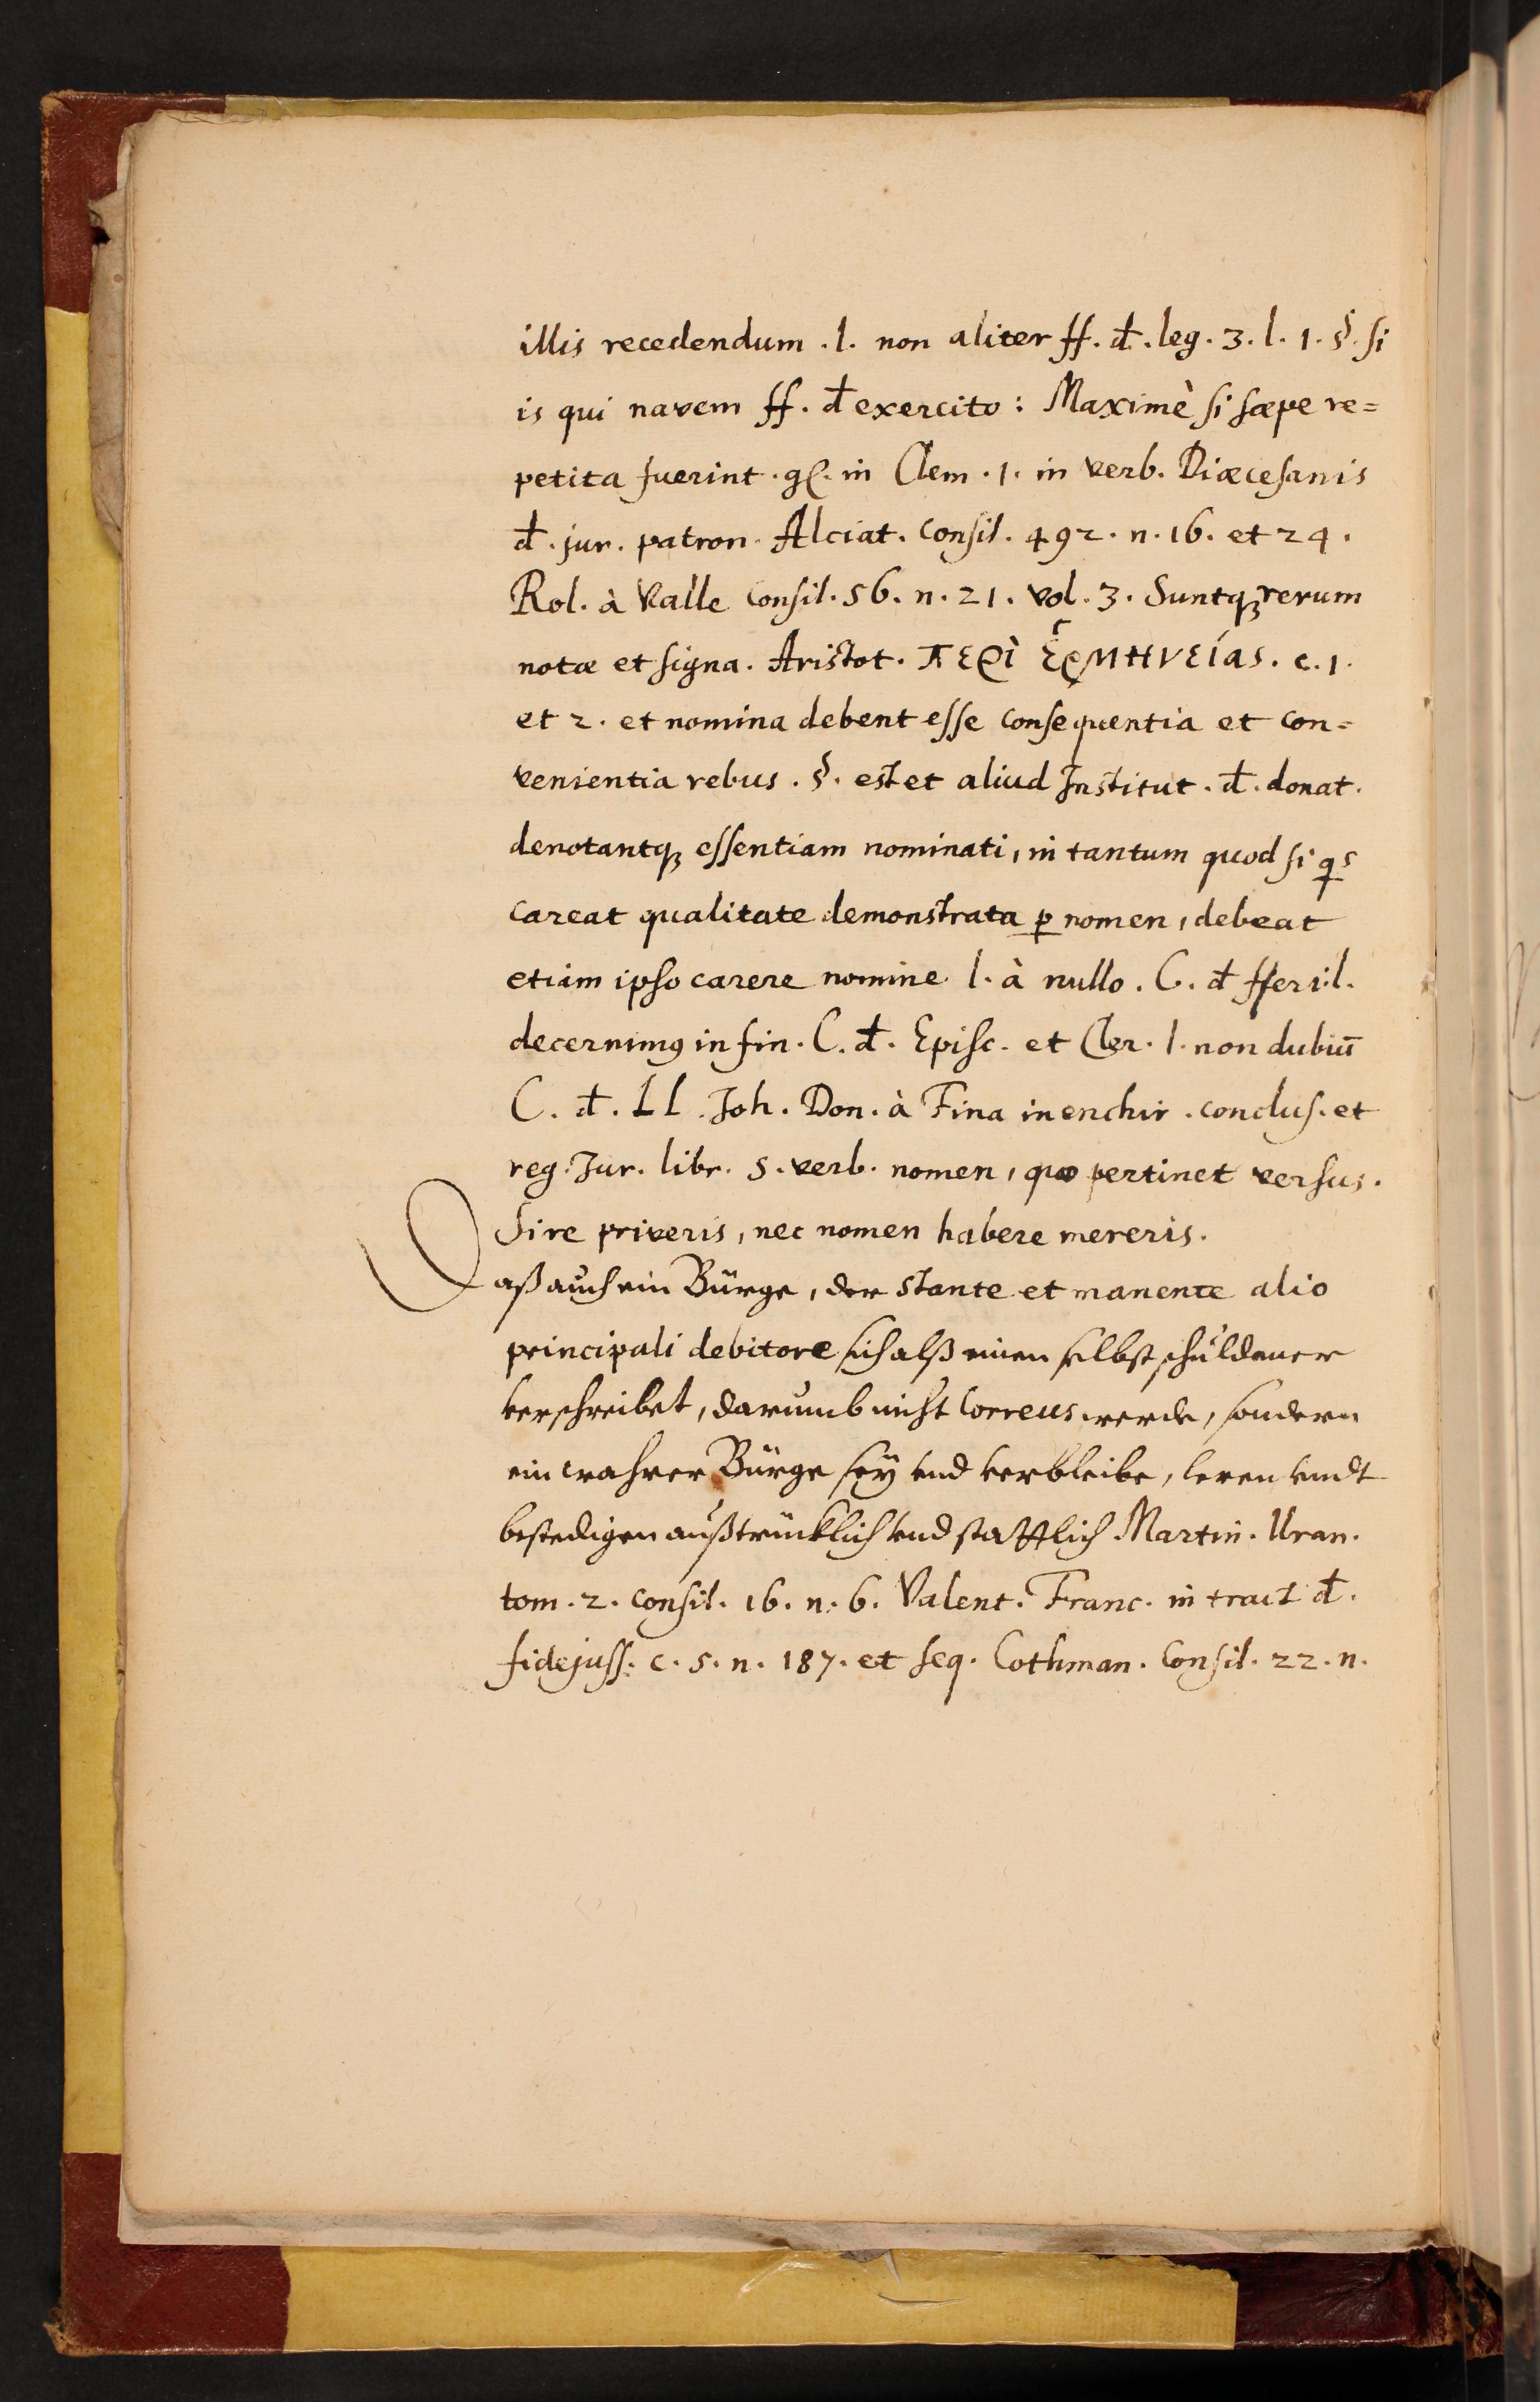 illis recedendum . l. non aliter ff. đ. leg. 3. l. 1. §. si
is qui navem ff. đ exercito: Maximè si sæpe re=
petita fuerint. gl. in Clem. 1. in verb. Diœcesanis
đ. jur. patron. Alciat. Consil. 492. n. 16. et 24.
Rol. à Valle Consil. 56. n. 21. vol. 3. Suntqꝫ rerum
notæ et signa. Aristot. περὶ ἑρμηνείας. c. 1.
et 2. et nomina debent esse consequentia et con=
venientia rebus. §. est et aliud Institut. đ. donat.
denotantqꝫ essentiam nominati, in tantum quod si qs
careat qualitate demonstrata ꝑ nomen, debeat
etiam ipso carere nomine l. à nullo. C. đ ffer: l.
decernimꝰ in fin. C. đ. Episc. et Cler. l. non dubiū
C. đ. LL. Joh. Don. à Fina in enchir. conclus. et
reg. Jur. libr. 5. verb. nomen, quo pertinet versus.
Sire priveris, nec nomen habere mereris.
Daß auch ein Bürge, der stante et manente alio
principali debitore sich alß einen selbst schuldener
verschreibet, darumb nicht Correus werde, sondern
ein wahrer Bürge sey vnd verbleibe, leren vndt
bestedigen außtrücklich vnd stattlich Martin. Uran.
tom. 2. Consil. 16. n. 6. Valent. Franc. in tract đ.
fidejuss. c. 5. n. 187. et seq. Cothman. Consil. 22. n.